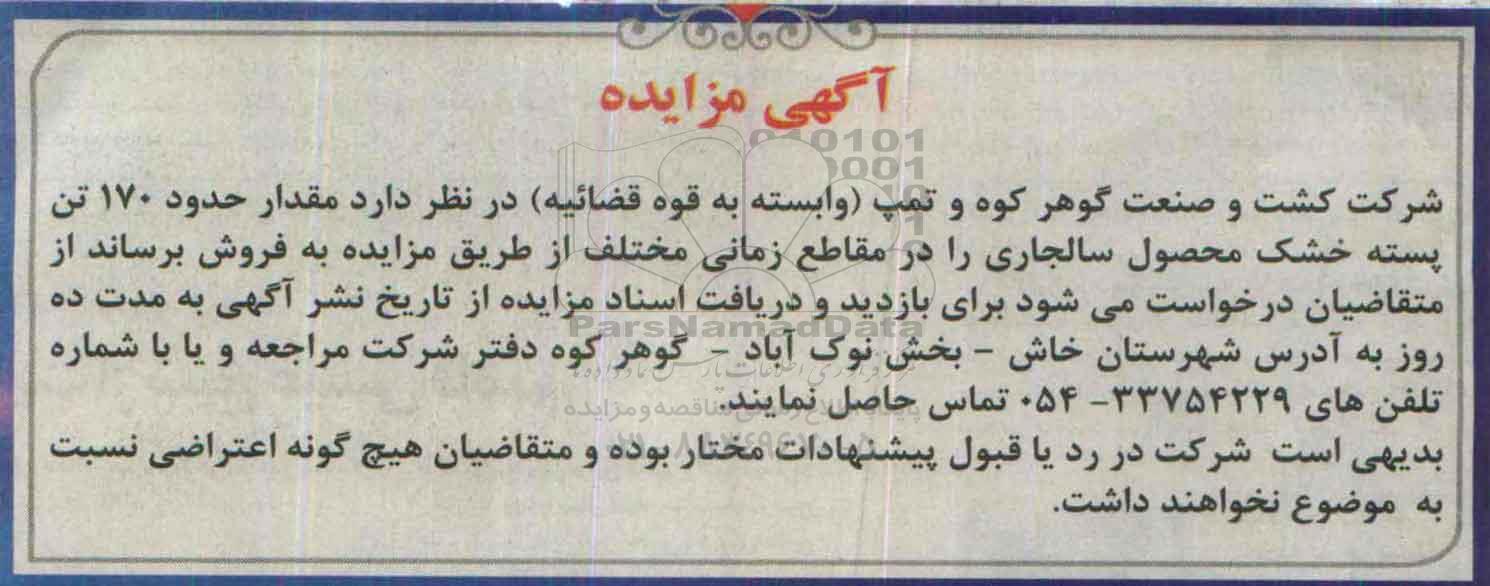 آگهی مزایده
شرکت کشت و صنعت گوهر کوه و تمپ (وابسته به قوه قضائیه) در نظر دارد مقدار حدود ۱۷۰ تن
پسته خشک محصول سالجاری را در مقاطع زمانی مختلف از طریق مزایده به فروش برساند از
متقاضیان درخواست می شود برای بازدید و دریافت اسناد مزایده از تاریخ نشر آگهی به مدت ده
روز به آدرس شهرستان خاش - بخش نوک آباد - گوهر کوه دفتر شرکت مراجعه و یا با شماره
تلفن های ۳۳۷۵۴۲۲۹- ۰۵۴ تماس حاصل نمایند.
بدیهی است شرکت در رد یا قبول پیشنهادات مختار بوده و متقاضیان هیچ گونه اعتراضی نسبت
به موضوع نخواهند داشت.
ParsNamadData